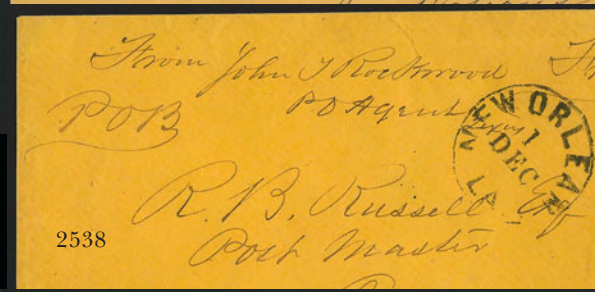 From John T Rockwood
P O B
P O Agent
Texas
NEW ORLEANS
1
DEC
LA
R. B. Russell Esq
Post Master
2538